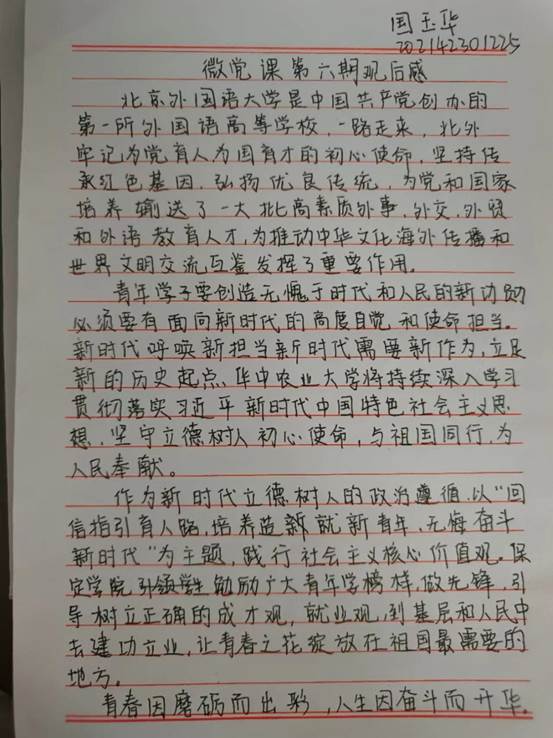 国玉华
202142301225
微党课第六期观后感
北京外国语大学是中国共产党创办的
第一所外国语高等学校,一路走来,北外
牢记为党育人为国育才的初心使命,坚持传
承红色基因,弘扬优良传统,为党和国家
培养输送了一大批高素质外事,外交,外贸
和外语教育人才,为推动中华文化海外传播和
世界文明交流互鉴发挥了重要作用。
青年学子要创造无愧于时代和人民的新功勋
必须要有面向新时代的高度自觉和使命担当。
新时代呼唤新担当新时代需要新作为,立足
新的历史起点,华中农业大学将持续深入学习
贯彻落实习近平新时代中国特色社会主义思
想,坚守立德树人初心使命,与祖国同行,为
人民奉献。
作为新时代立德树人的政治遵循,以"回
信指引育人路,培养造新就新青年,无悔奋斗
新时代"为主题,践行社会主义核心价值观。保
定学院引领学生勉励广大青年学榜样,做先锋,引
导树立正确的成才观,就业观,到基层和人民中
去建功立业,让青春之花绽放在祖国最需要的
地方。
青春因磨砺而出彩,人生因奋斗而升华。